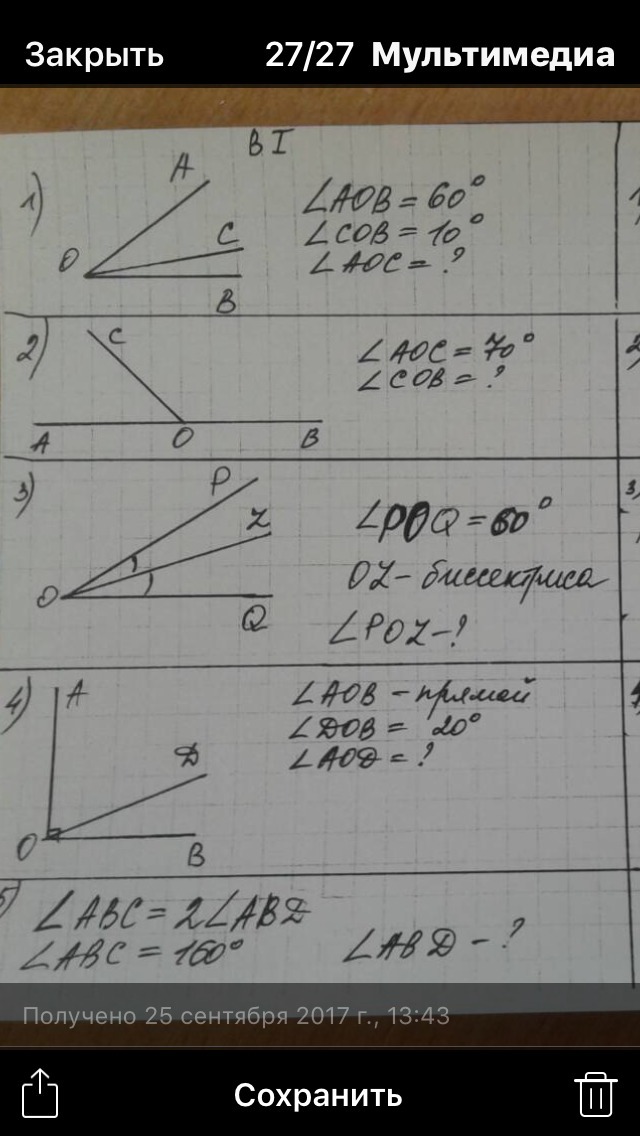 Закрыть 27/27 Мультимедиа
В I
1)
A
C
O
B
∠AOB = 60°
∠COB = 10°
∠AOC = ?
2)
C
A
O
B
∠AOC = 70°
∠COB = ?
3)
P
Z
O
Q
∠POQ = 60°
OZ - биссектриса
∠POZ - ?
4)
A
D
O
B
∠AOB - прямой
∠DOB = 20°
∠AOD = ?
5)
∠ABC = 2∠ABD
∠ABC = 160°
∠ABD - ?
Получено 25 сентября 2017 г., 13:43
Сохранить